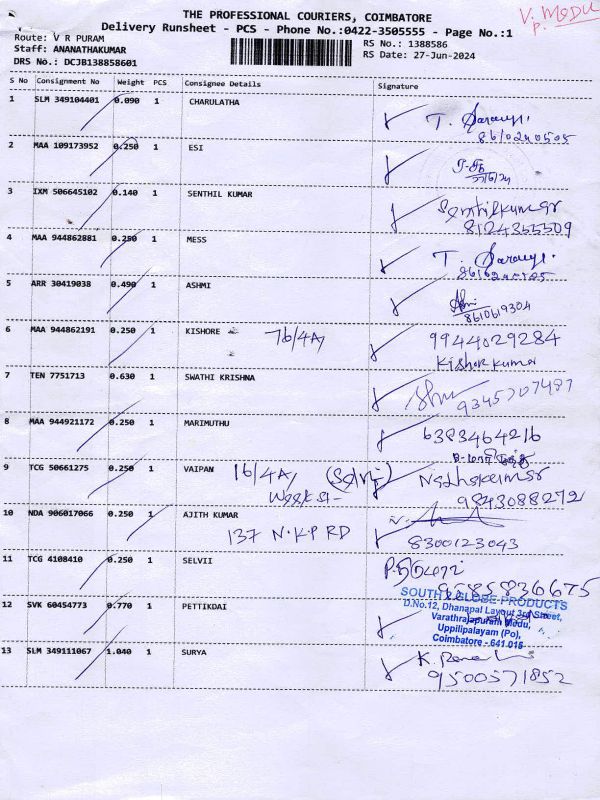 THE PROFESSIONAL COURIERS, COIMBATORE
V. MEDU
P.
Delivery Runsheet - PCS - Phone No.:0422-3505555 - Page No.:1
Route: V R PURAM
RS No.: 1388586
Staff: ANANATHAKUMAR
RS Date: 27-Jun-2024
DRS No.: DCJB138858601
S No Consignment No Weight PCS Consignee Details Signature
1 SLM 349104401 0.090 1 CHARULATHA
8610240505
2 MAA 109173952 0.250 1 ESI
3 IXM 506645102 0.140 1 SENTHIL KUMAR Senthilkumar
8124355509
4 MAA 944862881 0.250 1 MESS
5 ARR 30419038 0.490 1 ASHMI
8610619304
6 MAA 944862191 0.250 1 KISHORE 76/4A, 9944029284
Kishor kumar
7 TEN 7751713 0.630 1 SWATHI KRISHNA
9345707497
8 MAA 944921172 0.250 1 MARIMUTHU 6383464216
9 TCG 50661275 0.250 1 VAIPAN 16/4A, (Selvi)
9843088272
10 NDA 906017066 0.250 1 AJITH KUMAR
137 N.K.P RD 8300123043
11 TCG 4108410 0.250 1 SELVII
9585836675
SOUTH GLOBE PRODUCTS
12 SVK 60454773 0.770 1 PETTIKDAI
D.No.12, Dhanapal Layout 3rd Street,
Varathrajapuram Medu,
Uppilipalayam (Po),
Coimbatore - 641 015
13 SLM 349111067 1.040 1 SURYA
9500571852